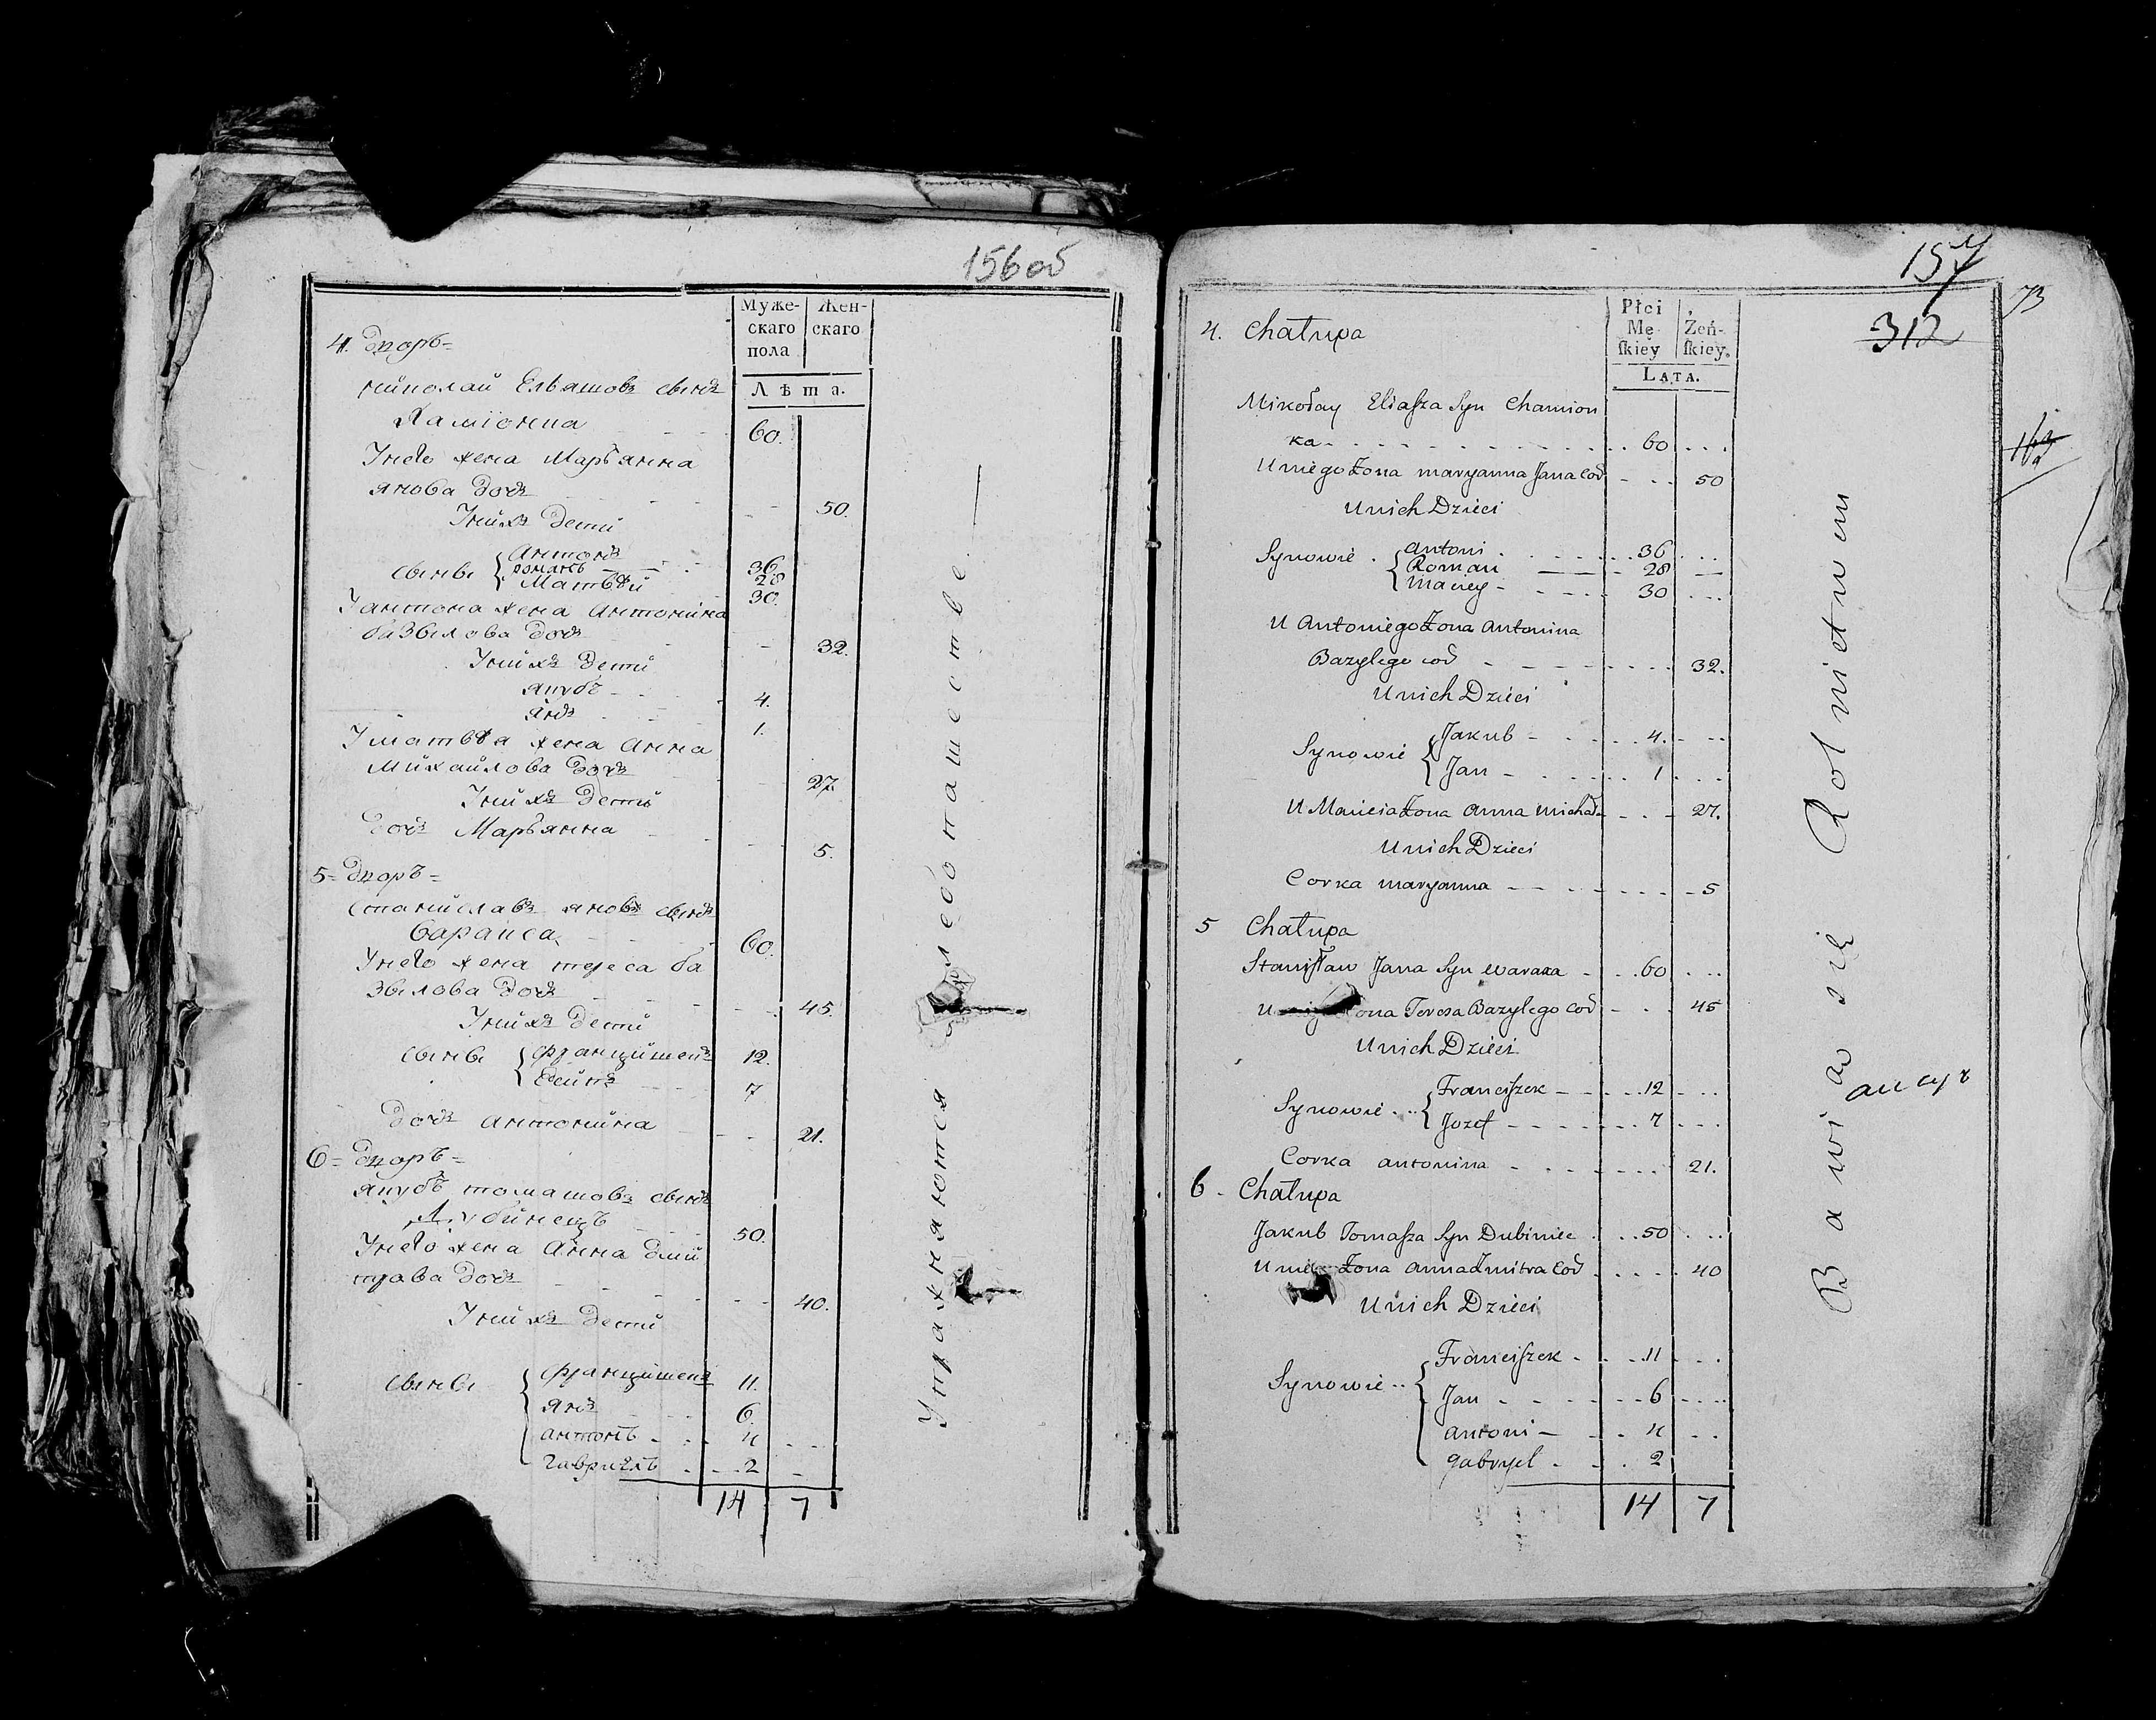 156 об
Муже-
скаго
пола
Жен-
скаго
Лѣта.
4. Дворъ =
Николай Ельяшовъ сынъ
Хаміонка 60.
У него жена Марьянна
Янова дочь 50.
У нихъ дети
сыны { Антонъ 36
романъ 28
Матвѣй 30.
У антона жена Антонина
базылова дочь 32.
У нихъ дети
якубъ 4.
янъ 1.
У матвѣя жена Анна
Михайлова дочь 27.
У нихъ дети
дочь Марьянна 5.
5 = Дворъ =
Станиславъ яновъ сынъ
60.
У него жена тереса ба
зылова дочь 45.
У нихъ дети
сыны { Францишекъ 12.
7
дочь антонина 21.
6 = Дворъ =
якубъ томашовъ сынъ
Дубинецъ 50.
У него жена Анна Дми
трова дочь 40.
У нихъ дети
сыны { Францишекъ 11.
янъ 6.
антонъ 4
гавриелъ 2
14 7
Упражняются хлебопашестве
157
73
312
Płci
Mę-
skiey
Żeń-
skiey.
LATA.
4. Chałupa
Mikołay Eliasza Syn Chamion
ka 60
U niego Żona maryanna Jana Cod 50
U nich Dzieci
Synowie { antoni 36
Roman 28
Maciey 30
U Antoniego Żona Antonina
Bazylego cod 32.
U nich Dzieci
Synowie { Jakub 4.
Jan 1
U Macieia Żona Anna Michała 27.
U nich Dzieci
Corka maryanna 5
5 Chałupa
Stanisław Jana Syn Waraxa 60
U Żona Teresa Bazylego Cod 45
U nich Dzieci
Synowie { Franciszek 12
Jozef 7
Corka antonina 21.
6 - Chałupa
Jakub Tomasza Syn Dubiniec 50
U Żona anna Dmitra Cod 40
U nich Dzieci
Synowie { Franciszek 11
Jan 6
Antoni 4
gabryel 2
14 7
Bawią się Rolnictwem